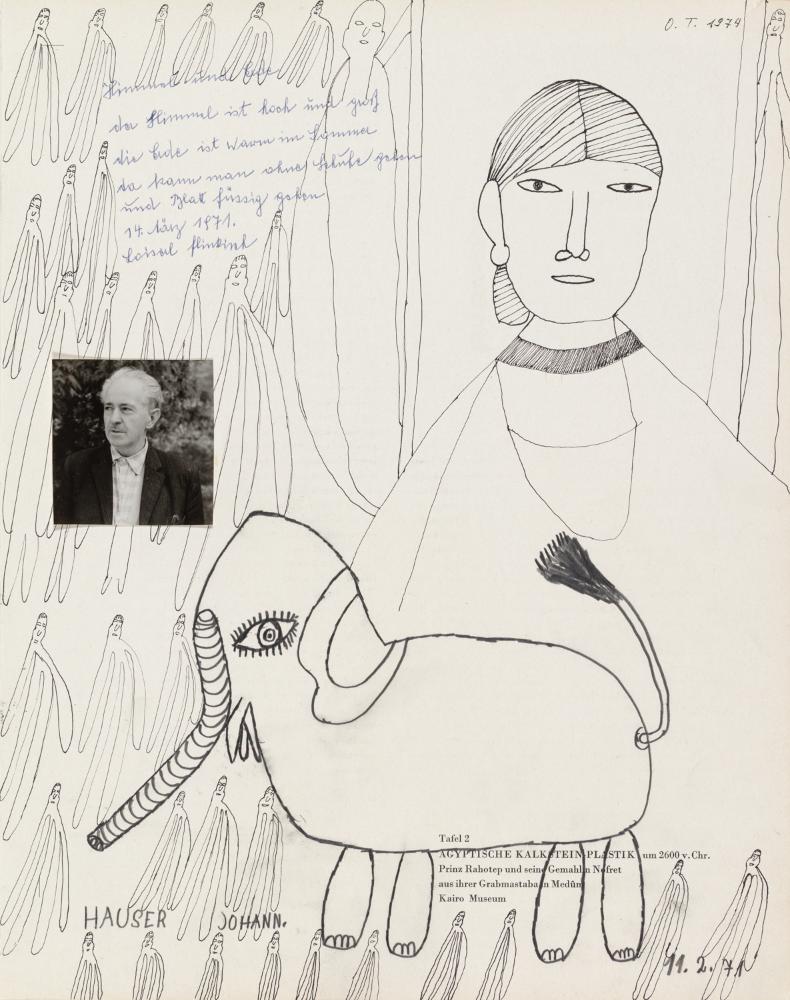 O. T. 1974
Himmel und Erde
der Himmel ist hoch und groß
die Erde ist warm im Sommer
da kann man ohne Schuhe gehen
und Blatt füssig gehen
14. März 1971.
Tafel 2
ÄGYPTISCHE KALKSTEIN-PLASTIK um 2600 v. Chr.
Prinz Rahotep und seine Gemahlin Nofret
aus ihrer Grabmastaba in Medûm
Kairo Museum
HAUSER JOHANN.
11. 2. 71